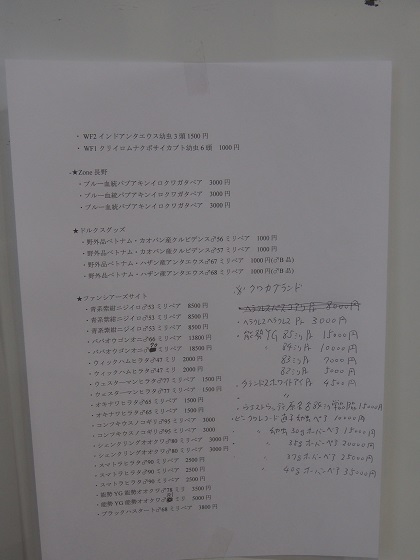 ・ WF2 インドアンタエウス幼虫 3 頭 1500 円
・ WF1 クリイロムナクボサイカブト幼虫 6 頭 1000 円
・★Zone 長野
・ブルー血統パプアキンイロクワガタペア 3000 円
・ブルー血統パプアキンイロクワガタペア 3000 円
・ブルー血統パプアキンイロクワガタペア 3000 円
★ドルクスグッズ
・野外品ベトナム・カオバン産クルビデンス♂56 ミリペア 1000 円
・野外品ベトナム・カオバン産クルビデンス♂57 ミリペア 1000 円
・野外品ベトナム・ハザン産アンタエウス♂67 ミリペア 1000 円(♂B 品)
・野外品ベトナム・ハザン産アンタエウス♂68 ミリペア 1000 円(♂B 品)
★ファンシアーズサイト
・青系紫紺ニジイロ♂53 ミリペア 8500 円
・青系紫紺ニジイロ♂53 ミリペア 8500 円
・青系紫紺ニジイロ♂53 ミリペア 8500 円
・ババオウゴンオニ♂66 ミリペア 13800 円
・ババオウゴンオニ♂ ミリペア 18500 円
・ウィックハムヒラタ♂47 ミリ 2000 円
・ウィックハムヒラタ♂47 ミリ 2000 円
・ウェスターマンヒラタ♂77 ミリペア 1500 円
・ウェスターマンヒラタ♂77 ミリペア 1500 円
・オキナワヒラタ♂65 ミリペア 1500 円
・オキナワヒラタ♂65 ミリペア 1500 円
・コンフキウスノコギリ♂95 ミリペア 3000 円
・コンフキウスノコギリ♂95 ミリペア 3000 円
・シェンクリングオオクワ♂80 ミリペア 3000 円
・シェンクリングオオクワ♂80 ミリペア 3000 円
・スマトラヒラタ♂90 ミリペア 2500 円
・スマトラヒラタ♂90 ミリペア 2500 円
・スマトラヒラタ♂90 ミリペア 2500 円
・能勢 YG 能勢オオクワ♂78 ミリ 3500 円
・能勢 YG 能勢オオクワ♂ ミリ 3000 円
・ブラックバスタート♂68 ミリペア 3800 円
クワカブランド
8000円
・ヘラクレスヘラクレス 3000円
・能勢YG 85ミリ 15000円
84ミリ 10000円
83ミリ 7000円
82ミリ 5000円
4500円
〃
15000円
10000円
〃 幼虫 30g オーバーペア 15000円
〃 35g オーバーペア 20000円
〃 37g オーバーペア 25000円
〃 40g オーバーペア 35000円